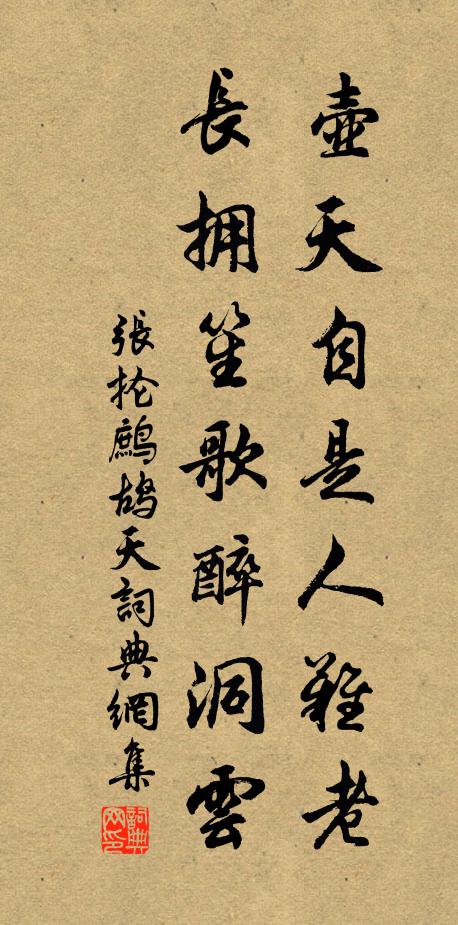 壺天自是人難老
長拥笙歌醉洞雲
張抡鷓鴣天詞典網集
詞典网印